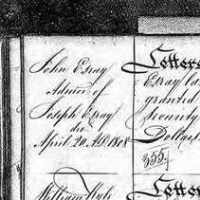 John Esray
Admor of
Joseph Esray
dec
April 20. AD. 1808
Letters
Esray la
granted
security
Dollars
355.
William
Letters